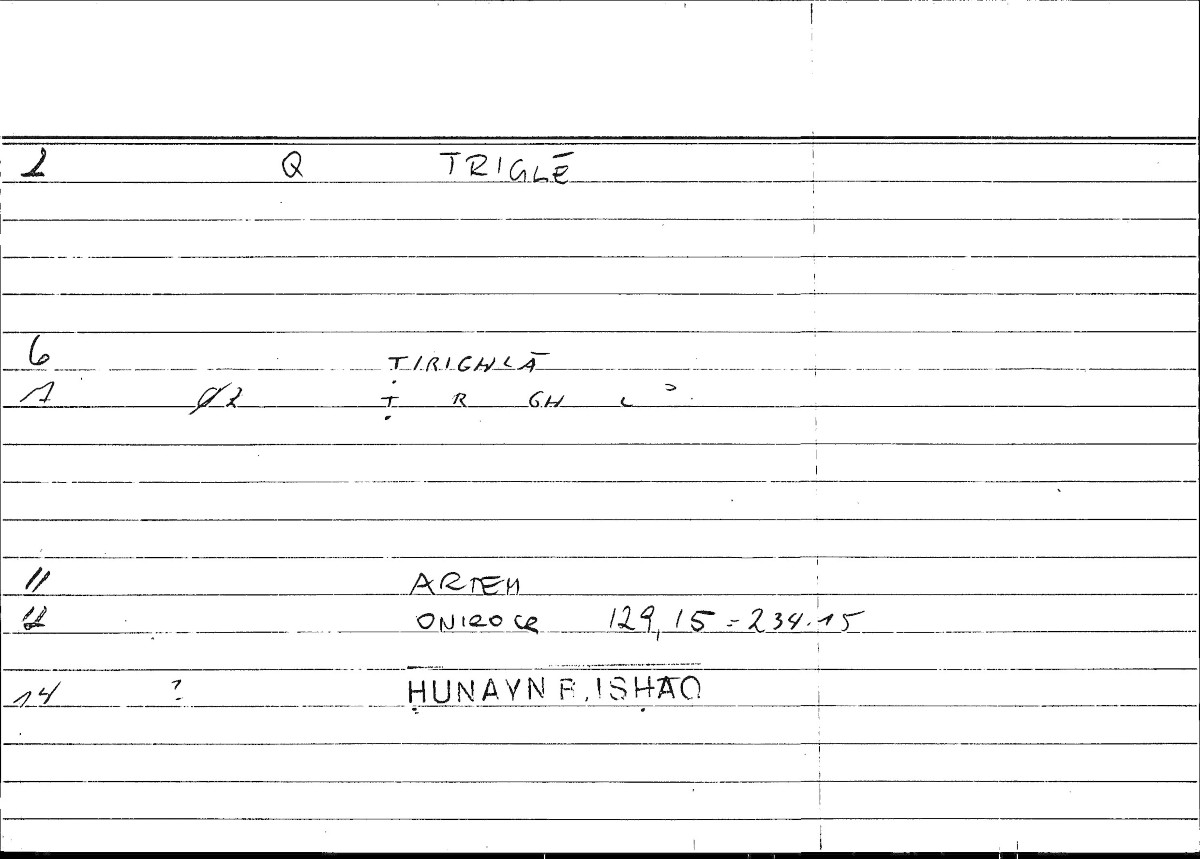 2 Q TRIGLĒ
6 ṬIRIGHLĀ
7 Ø2 Ṭ R GH L ʾ
11 ARTEM
12 ONIROCR 129,15 = 234.15
14 ? ḤUNAYN B. ISḤĀQ